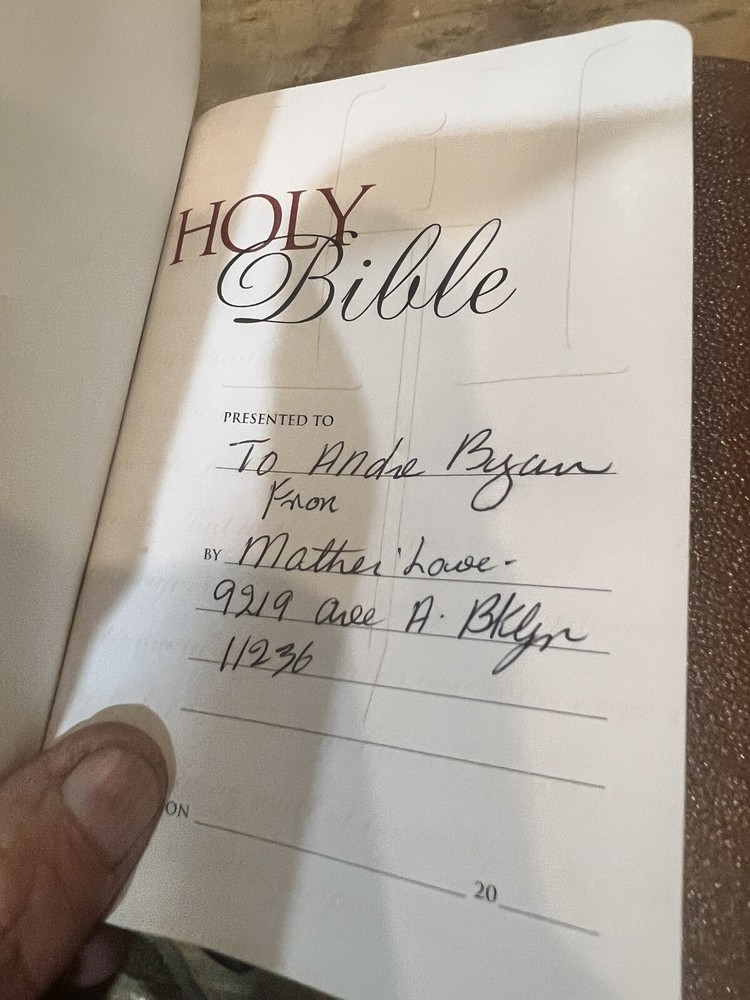 HOLY
Bible
PRESENTED TO
To Andre Byan
From
BY Mather Lowe -
9219 Ave A. BKlyn
11236
ON 20